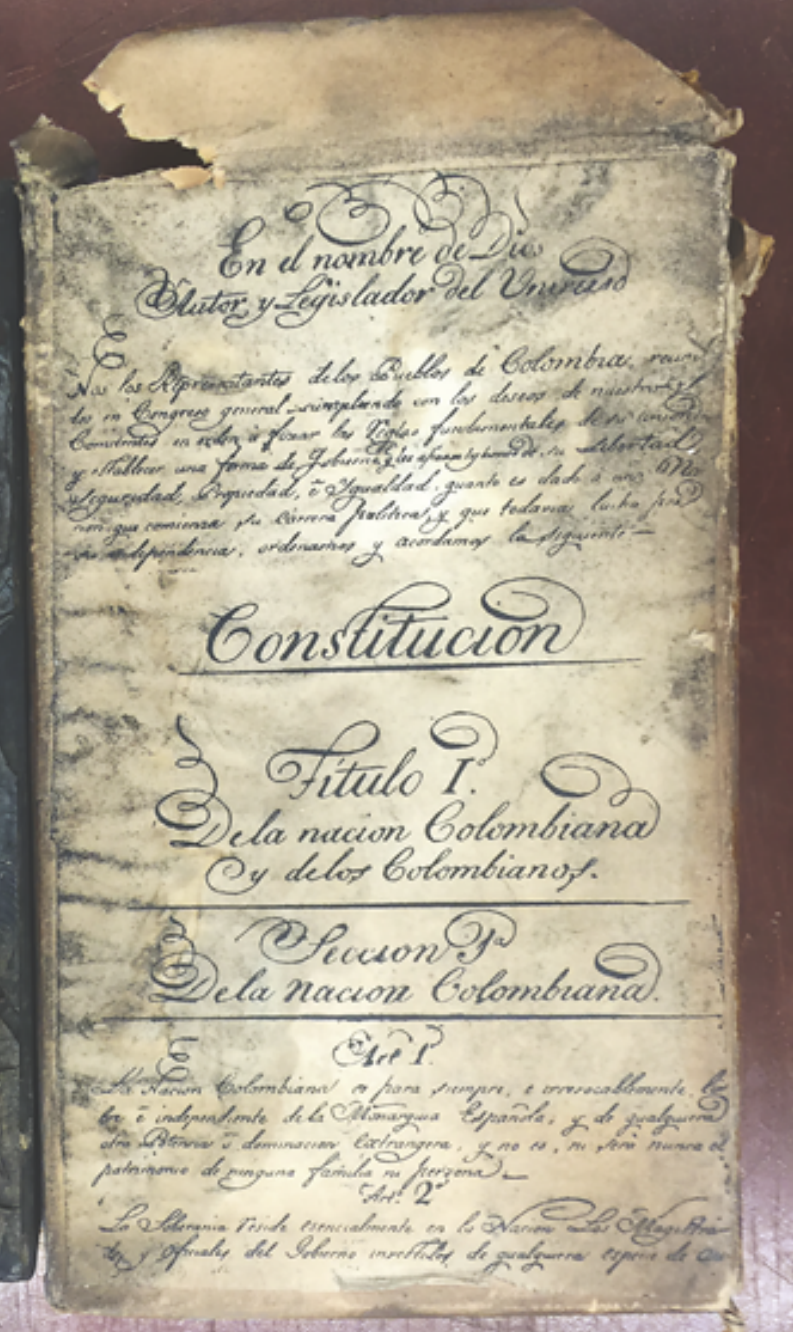 En el nombre de Dios
Autor y Legislador del Universo
Nos los Representantes delos Pueblos de Colombia, reuni
dos en Congreso general cumpliendo con los deseos de nuestros
Comitentes en orden á fixar las Reglas fundamentales de su union
y establecer una forma de Gobierno q. les afianze los bienes de su Libertad
Seguridad, Propiedad, é Igualdad, quanto es dado á una Na
cion que comienza su carrera Politica, y que todavia lucha por
su independencia, ordenamos y acordamos la siguiente —
Constitucion
Titulo I.º
Dela nacion Colombiana
y delos Colombianos.
Seccion 1ª
Dela nacion Colombiana.
Art. 1.
La Nacion Colombiana es para siempre, e irrevocablemente, li
bre é independiente dela Monarquia Española, y de qualquiera
otra Potencia ó dominacion Extrangera, y no es, ni será nunca el
patrimonio de ninguna familia ni persona.
Art. 2º
La Soberania reside esencialmente en la Nacion. Los Magistra
dos y Oficiales del Gobierno investidos de qualquiera especie de au